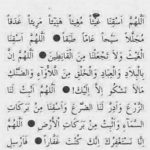 اَللّٰهُمَّ اسْقِنَا غَيْثًا مُغِيْثًا هَنِيْئًا مَرِيْئًا غَدَقًا
مُجَلِّلًا سَحًّا عَامًّا طَبَقًا ● اَللّٰهُمَّ اسْقِنَا
الْغَيْثَ وَلَا تَجْعَلْنَا مِنَ الْقَانِطِيْنَ ● اَللّٰهُمَّ إِنَّ
بِالْبِلَادِ وَالْعِبَادِ وَالْخَلْقِ مِنَ اللَّأْوَاءِ وَالضَّنْكِ
مَا لَا نَشْكُوْ إِلَّا إِلَيْكَ ● اَللّٰهُمَّ أَنْبِتْ لَنَا
الزَّرْعَ وَأَدِرَّ لَنَا الضَّرْعَ وَأَسْقِنَا مِنْ بَرَكَاتِ
السَّمَآءِ وَأَنْبِتْ لَنَا مِنْ بَرَكَاتِ الْأَرْضِ ● اَللّٰهُمَّ
إِنَّا نَسْتَغْفِرُكَ إِنَّكَ كُنْتَ غَفَّارًا ● فَأَرْسِلِ